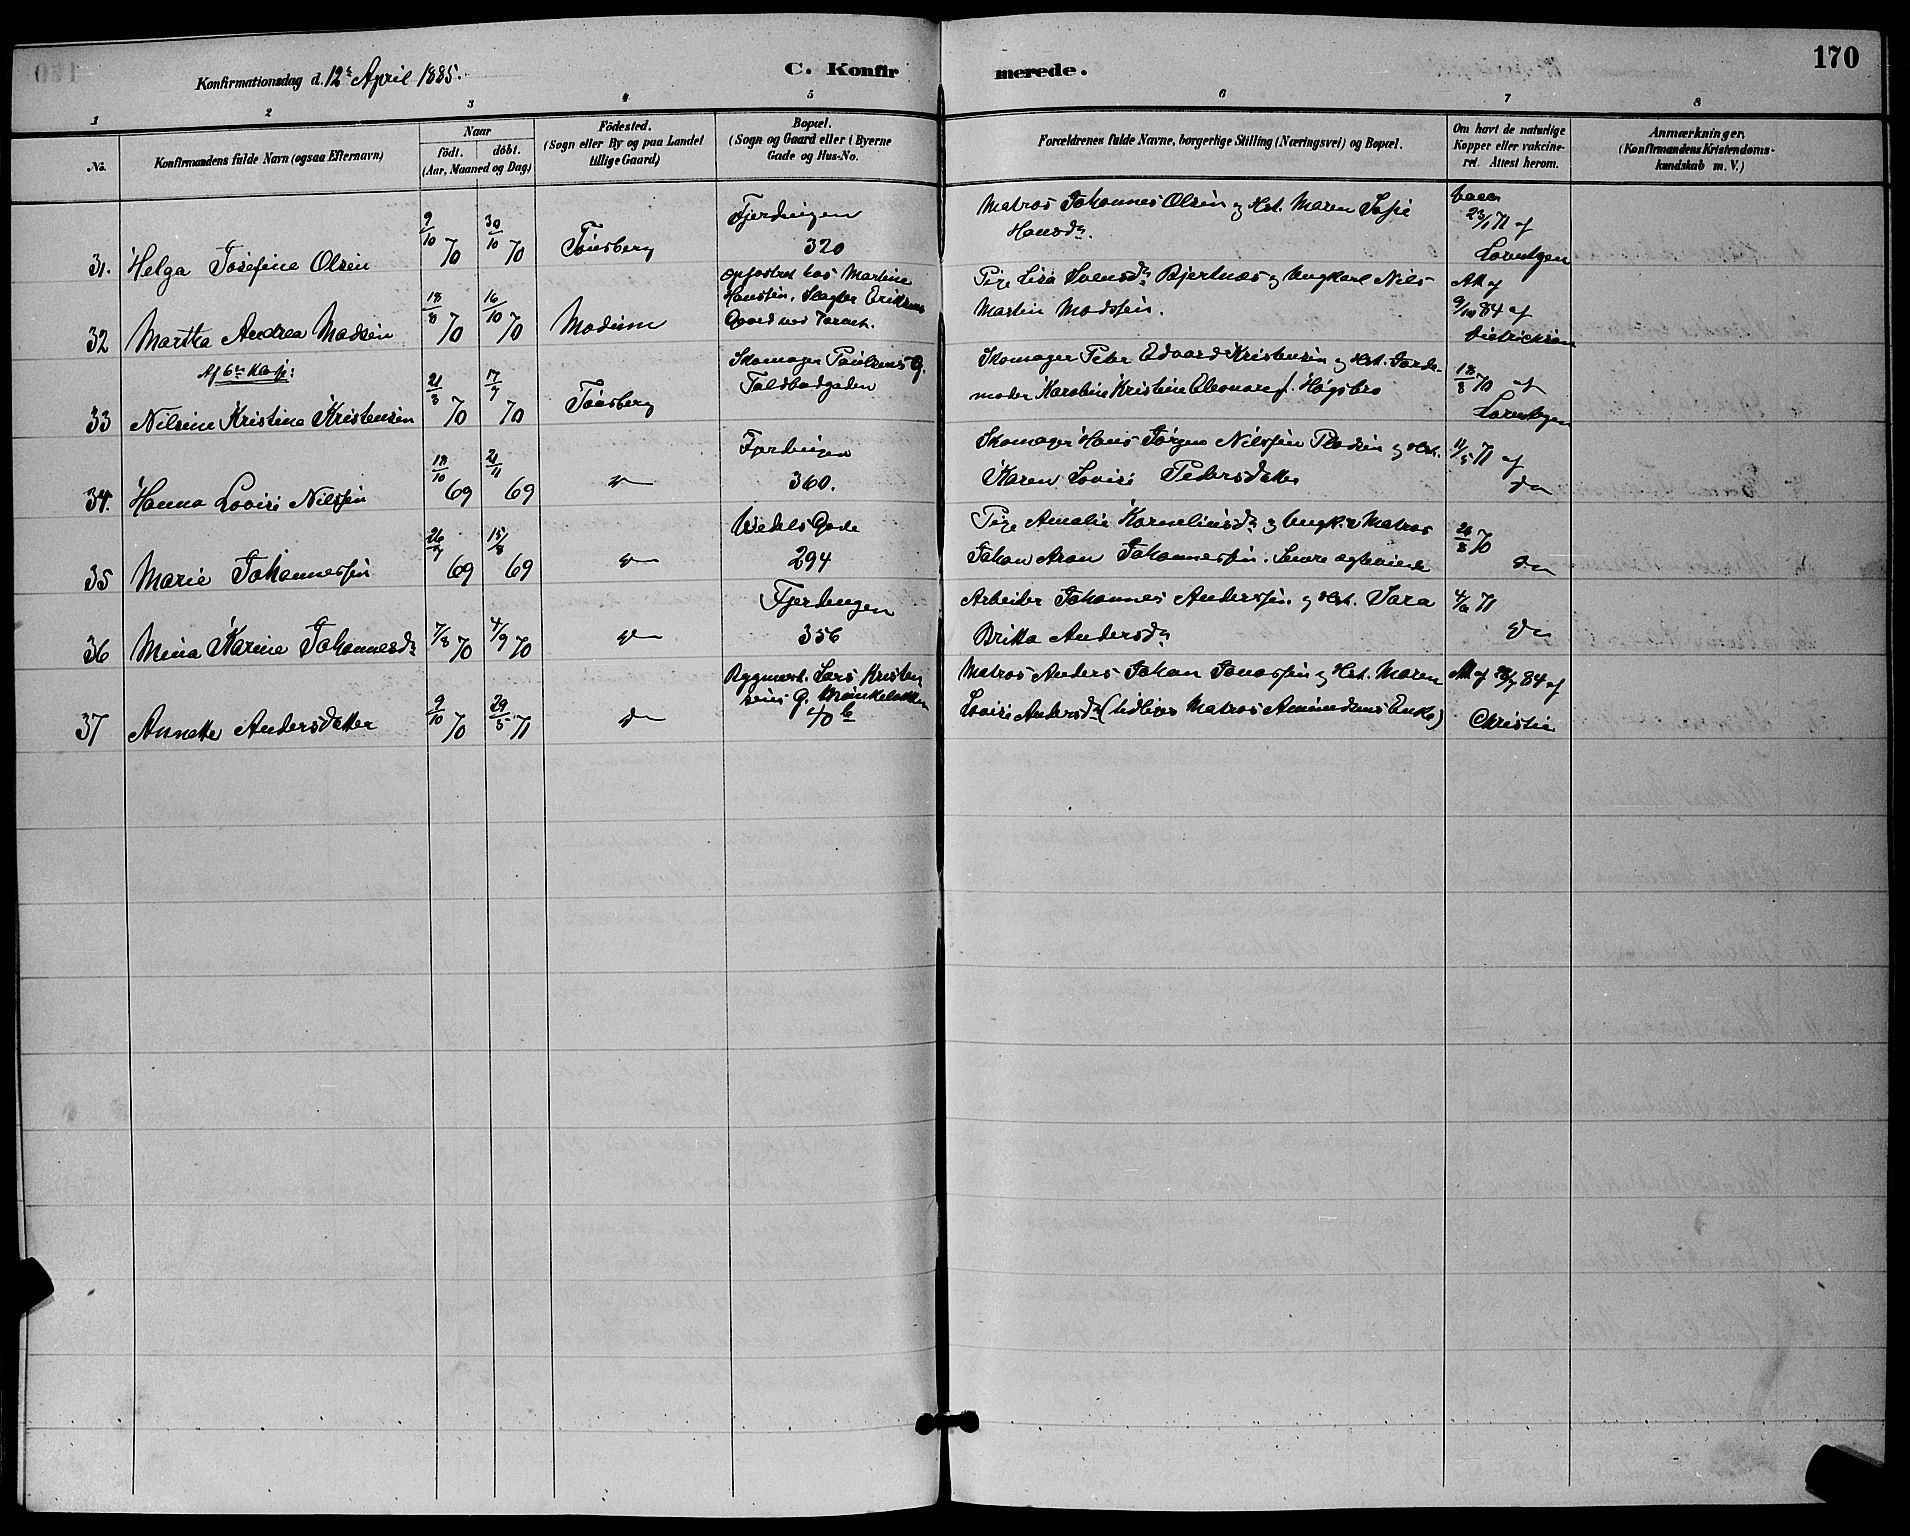 Konfirmationsdag d. 12te April 1885.
C. Konfirmerede.
170
1 2 3 4 5 6 7 8
No.
Konfirmandens fulde Navn (ogsaa Efternavn)
Naar
födt. döbt.
(Aar, Maaned og Dag)
Födested.
(Sogn eller By og paa Landet
tillige Gaard)
Bopæl.
(Sogn og Gaard eller i Byerne
Gade og Hus-No.
Forældrenes fulde Navne, borgerlige Stilling (Næringsvei) og Bopæl.
Om havt de naturlige
Kopper eller vakcine-
ret. Attest herom.
Anmærkninger.
(Konfirmandens Kristendoms-
kundskab m. V.)
31. Helga Josefine Olsen 9/10 70 30/10 70 Tönsberg
Fjerdingen
320
Matros Johannes Olsen og Hst. Maren Sofie
Hansdr.
vacc.
23/1 71 af
Lorentzen
32 Martha Andrea Madsen 18/8 70 16/10 70 Modum
opfostret hos Martine
Hanssen, Slagter Eriksens
Gaard ved Torvet.
Pige Lisa Svensdr. Bjertnæs og Ungkarl Nils
Martin Madssen.
Att. af
9/10 84 af
Dietrichson
Af 6te Klasse:
33 Nilsine Kristine Kristensen 21/3 70 17/7 70 Tönsberg
Skomager Paulsens G.
Toldbodgaden
Skomager Peter Edvard Kristensen og Hst. Jorde-
moder Karoline Kristine Eleonore f. Høgsbro
18/8 70 af
Lorentzen
34. Hanna Lovise Nilssen 18/10 69 21/11 69 do
Fjerdingen
360.
Skomager Hans Jørgen Nilssen Pladsen og Hst.
Karen Lovise Pedersdatter
11/5 71 af
do
35 Marie Johannessen 26/7 69 15/8 69 do
Wedels Gade
294
Pige Amalie Korneliusdr. og Ungk. Matros
Johan Aron Johannessen. Senere ægteviede
24/8 70
do
36 Mina Karine Johannesdr. 7/8 70 4/9 70 do
Fjerdingen
356
Arbeider Johannes Anderssen og Hst. Sara
Britta Andersdr.
71
do
37 Annette Andersdatter 9/10 70 29/5 71 do
Bygmest. Lars Kristen
sens G. Trinkelokken
40 b
Matros Anders Johan Jonassen og Hst. Maren
Lovise Andersdr. (tidligere Matros Amundsens Enke)
Att. af 84 af
Christie